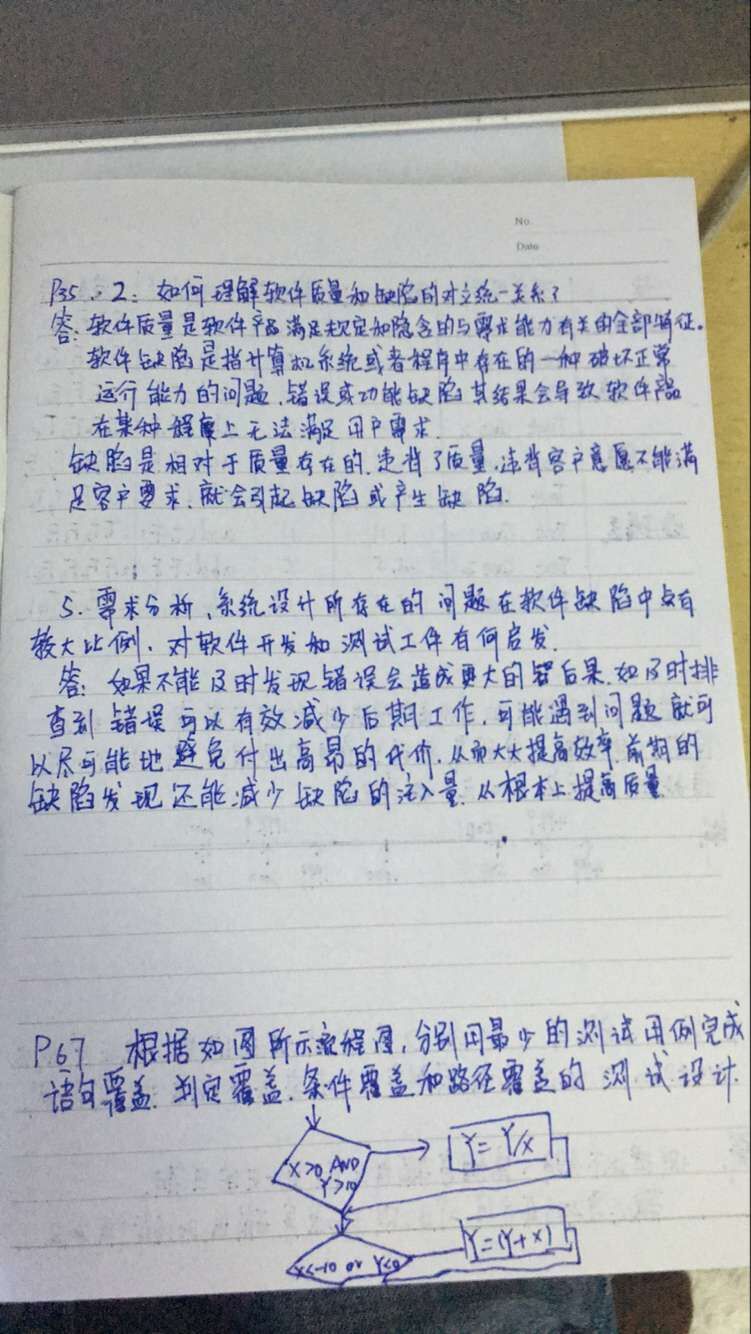 No.
Date
P35. 2. 如何理解软件质量和缺陷的对立统一关系?
答: 软件质量是软件产品满足规定和隐含的与需求能力有关的全部特征。
软件缺陷是指计算机系统或者程序中存在的一种破坏正常
运行能力的问题、错误或功能缺陷其结果会导致软件产品
在某种程度上无法满足用户需求.
缺陷是相对于质量存在的.违背了质量,违背客户意愿不能满
足客户要求.就会引起缺陷或产生缺陷.
5. 需求分析、系统设计所存在的问题在软件缺陷中占有
较大比例.对软件开发和测试工作有何启发.
答: 如果不能及时发现错误会造成更大的后果.如及时排
查到错误可以有效减少后期工作,可能遇到问题就可
以尽可能地避免付出高昂的代价.从而大大提高效率.前期的
缺陷发现还能减少缺陷的注入量.从根本上提高质量
P67 根据如图所示流程图,分别用最少的测试用例完成
语句覆盖.判定覆盖.条件覆盖和路径覆盖的测试设计.
X>0 AND
Y>10
Y=Y/X
X<-10 or Y<0
Y=(Y+X)